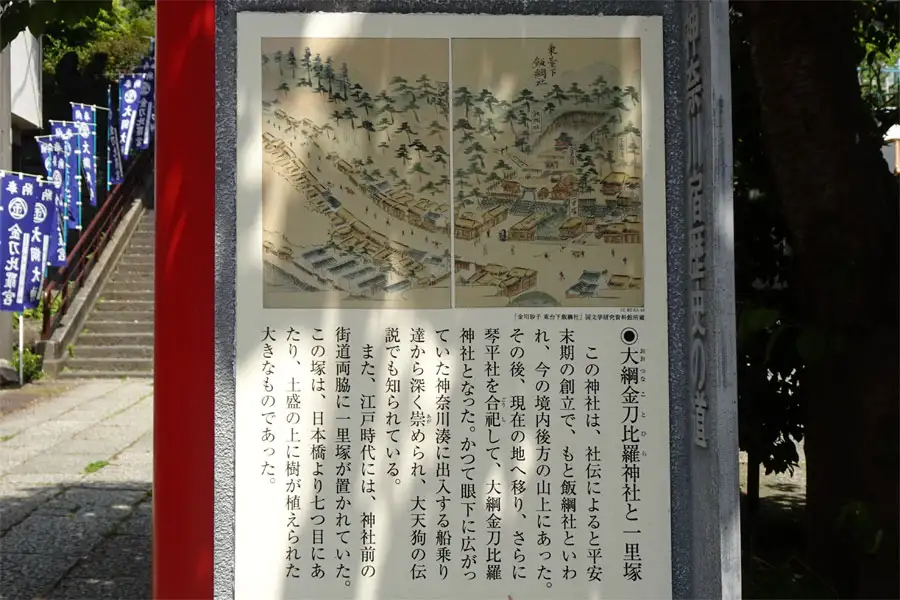 神奈川宿歴史の道
東臺下
飯綱社
「金川砂子 東台下飯綱社」国文学研究資料館所蔵
●大綱金刀比羅神社と一里塚
おおつなことひら
この神社は、社伝によると平安
末期の創立で、もと飯綱社といわ
れ、今の境内後方の山上にあった。
その後、現在の地へ移り、さらに
琴平社を合祀して、大綱金刀比羅
ごうし
神社となった。かつて眼下に広がっ
ていた神奈川湊に出入する船乗り
達から深く崇められ、大天狗の伝
あが
説でも知られている。
また、江戸時代には、神社前の
街道両脇に一里塚が置かれていた。
この塚は、日本橋より七つ目にあ
たり、土盛の上に樹が植えられた
大きなものであった。
奉納
金刀比羅宮
大綱大